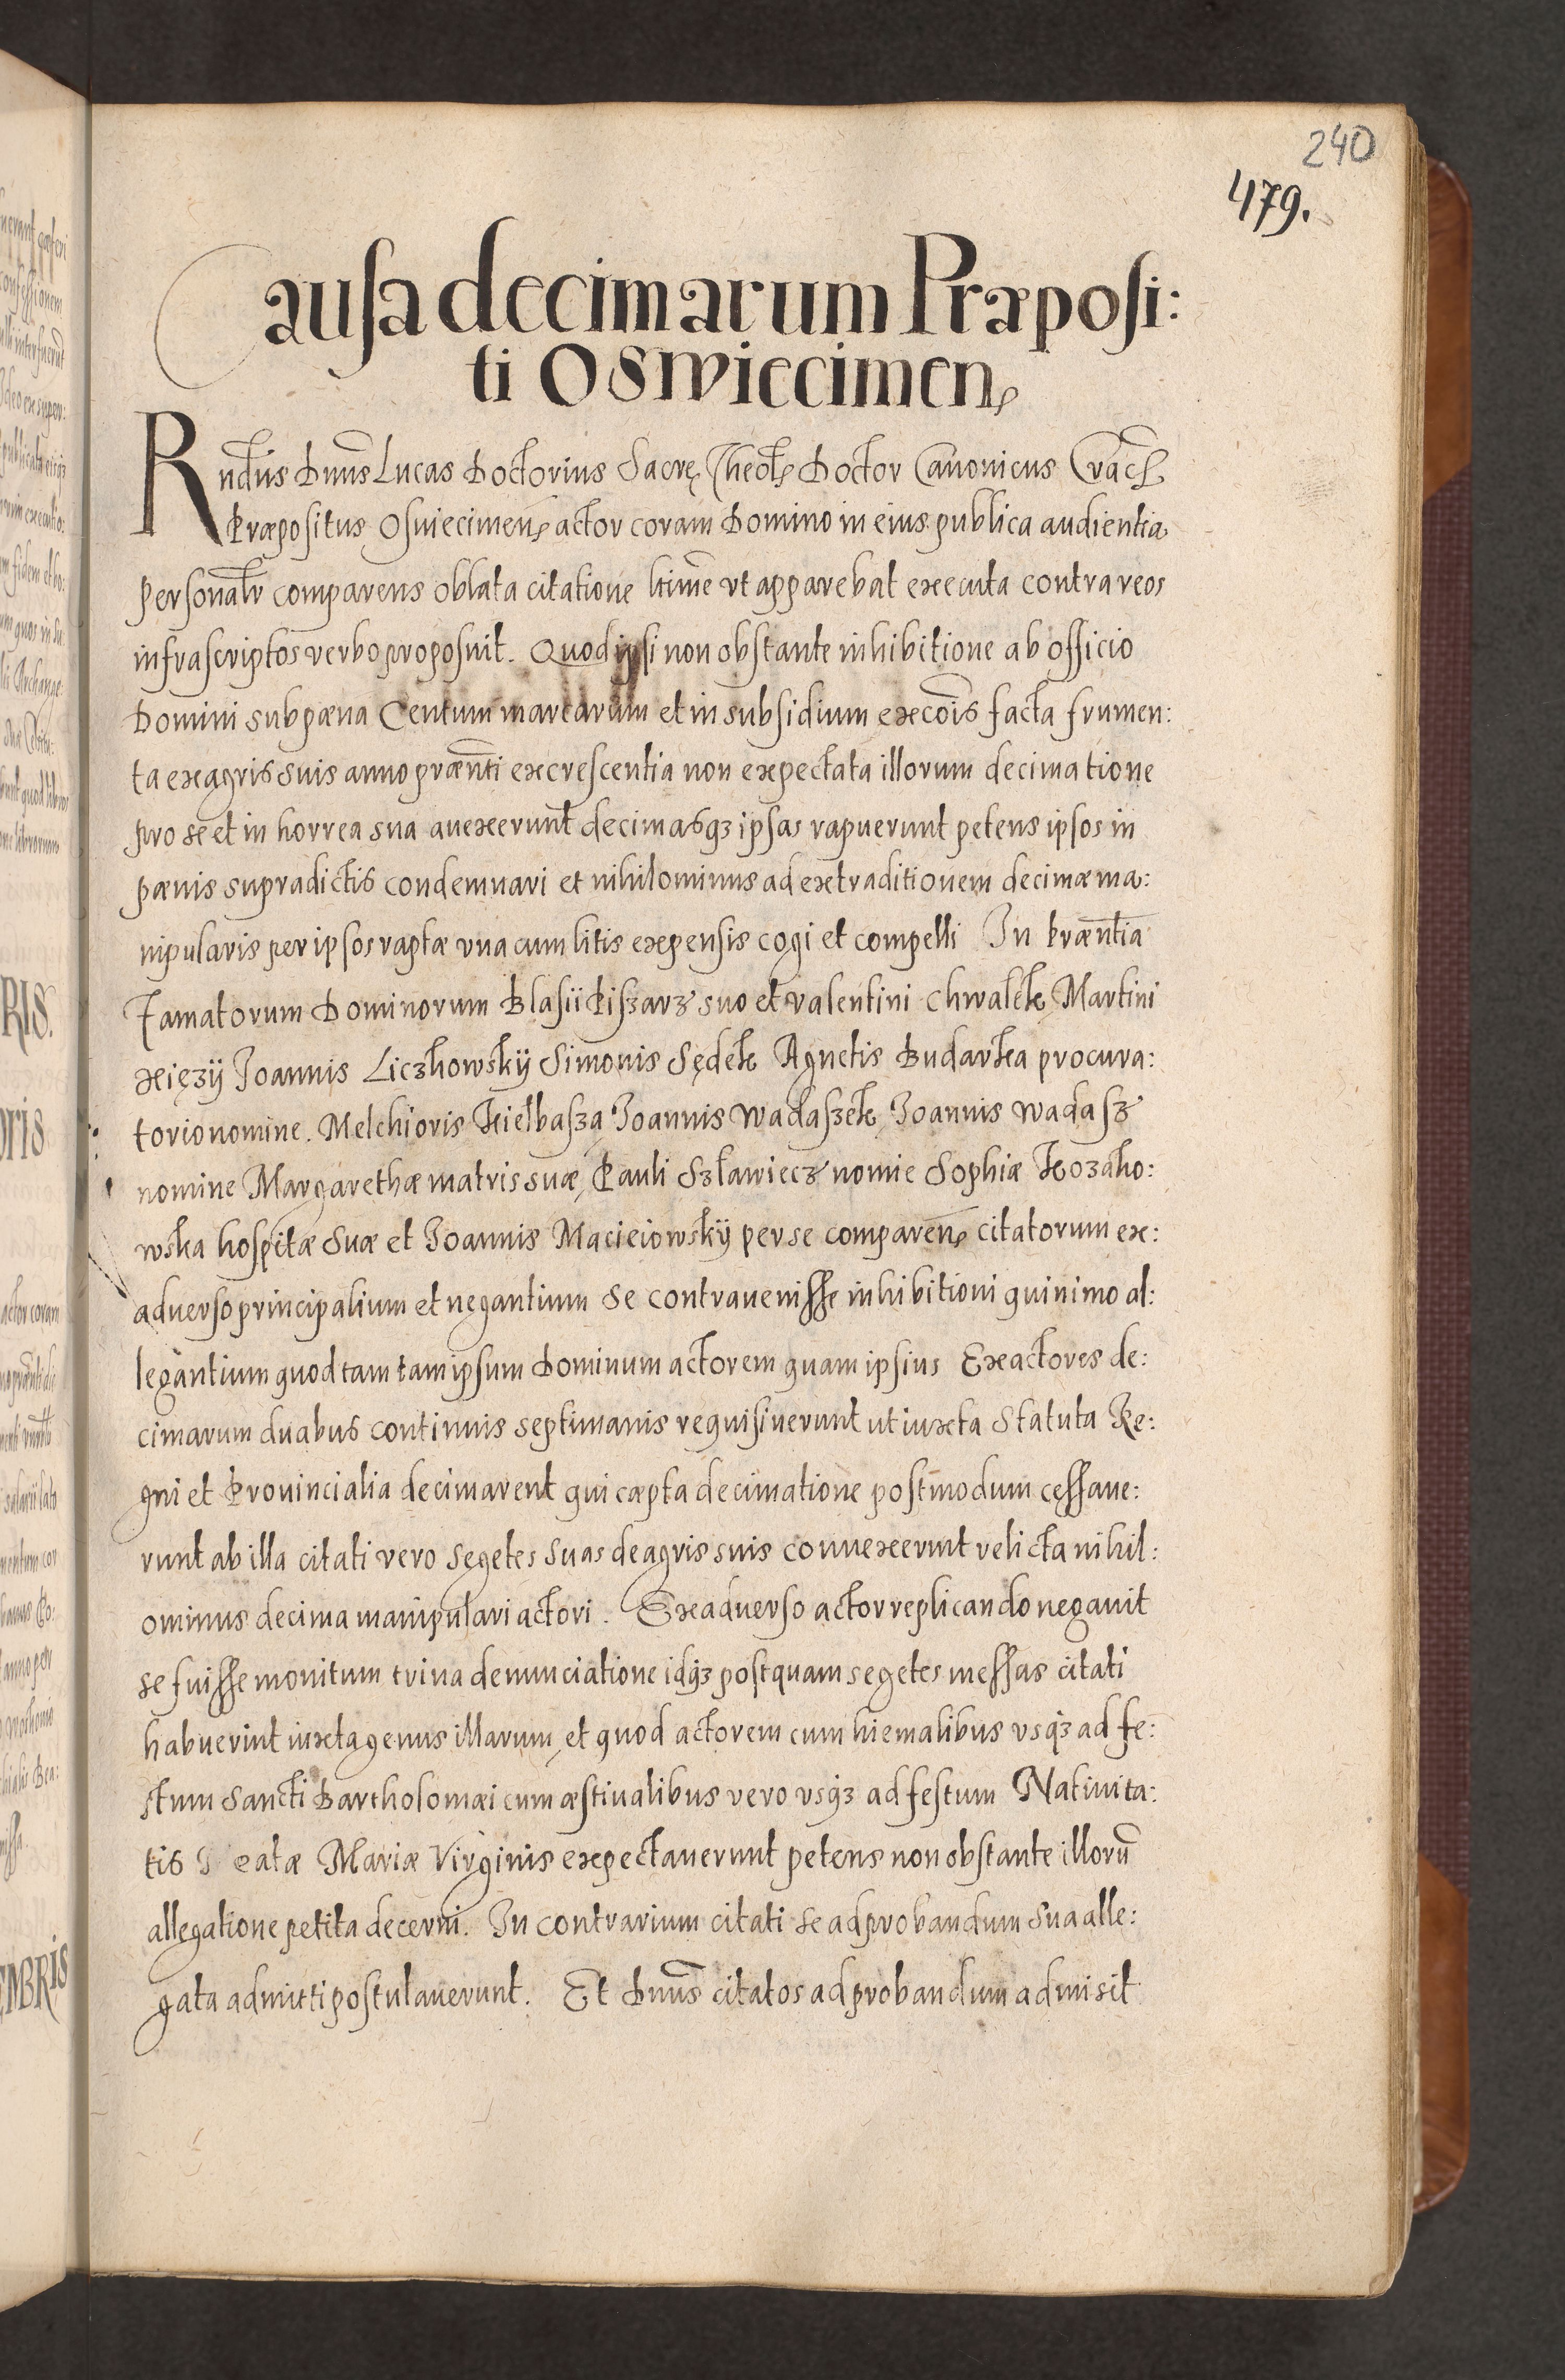 240
479.
Causa decimarum Præposi:
ti Oswiecimen
Rndus Dnus Lucas Doctorius Sacrę Theol Doctor Canonicus Crac
Præpositus Osuiecimen actor coram Domino in eius publica audientia
personalr comparens oblata citatione ltime vt apparebat executa contra reos
infrascriptos verbo proposuit. Quod ipsi non obstante inhibitione ab officio
Domini sub pæna Centum marcarum et in subsidium excois facta frumen:
ta ex agris suis anno prænti excrescentia non expectata illorum decimatione
pro se et in horrea sua auexerunt decimasqꝫ ipsas rapuerunt petens ipsos in
pænis supradictis condemnari et nihilominus ad extraditionem decimæ ma:
nipularis per ipsos raptæ vna cum litis expensis cogi et compelli In Præntia
Famatorum Dominorum Blasii Piszarz suo et valentini Chwalek Martini
xięzÿ Joannis Liczkowskÿ Simonis Sędek Agnetis Budarka procura:
torio nomine. Melchioris Kielbasza Joannis Wadaszek, Joannis Wadasz
nomine Margarethæ matris suæ, Pauli Szławiecz nomie Sophiæ Kozako:
wska hospitæ Suæ et Joannis Macieiowskÿ per se comparen citatorum ex:
aduerso principalium et negantium se contrauenisse inhibitioni quinimo al:
legantium quod tam tam ipsum Dominum actorem quam ipsius Exactores de:
cimarum duabus continuis septimanis requisiuerunt ut iuxta Statuta Re:
gni et Prouincialia decimarent qui cæpta decimatione postmodum cessaue:
runt ab illa citati vero segetes suas de agris suis conuexerunt relicta nihil:
ominus decima manipulari actori. Exaduerso actor replicando negauit
se fuisse monitum trina denunciatione idqꝫ postquam segetes messas citati
habuerint iuxta genus illarum, et quod actorem cum hiemalibus vsqꝫ ad fe:
stum Sancti Bartholomæi cum æstiualibus vero vsqꝫ ad festum Natiuita:
tis Beatæ Mariæ Virginis expectauerunt petens non obstante illoru
allegatione petita decerni. In contrarium citati se ad probandum sua alle:
gata admitti postulauerunt. Et Dnus citatos ad probandum admisit